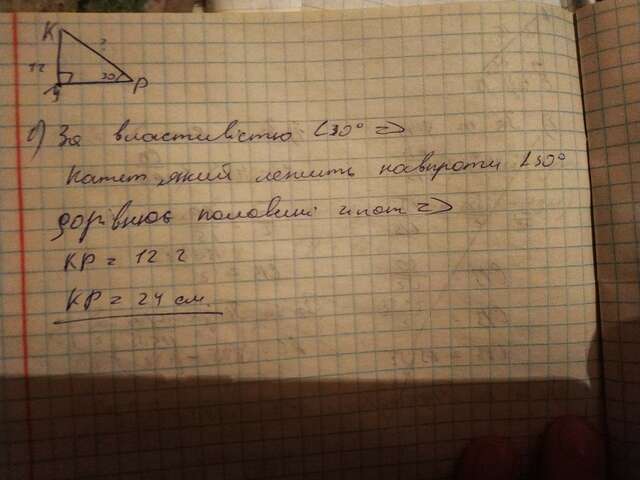 K
?
12
30
P
1) За властивістю ∠30° =>
катет, який лежить навпроти ∠30°
дорівнює половині гіпот =>
KP = 12 · 2
KP = 24 см.